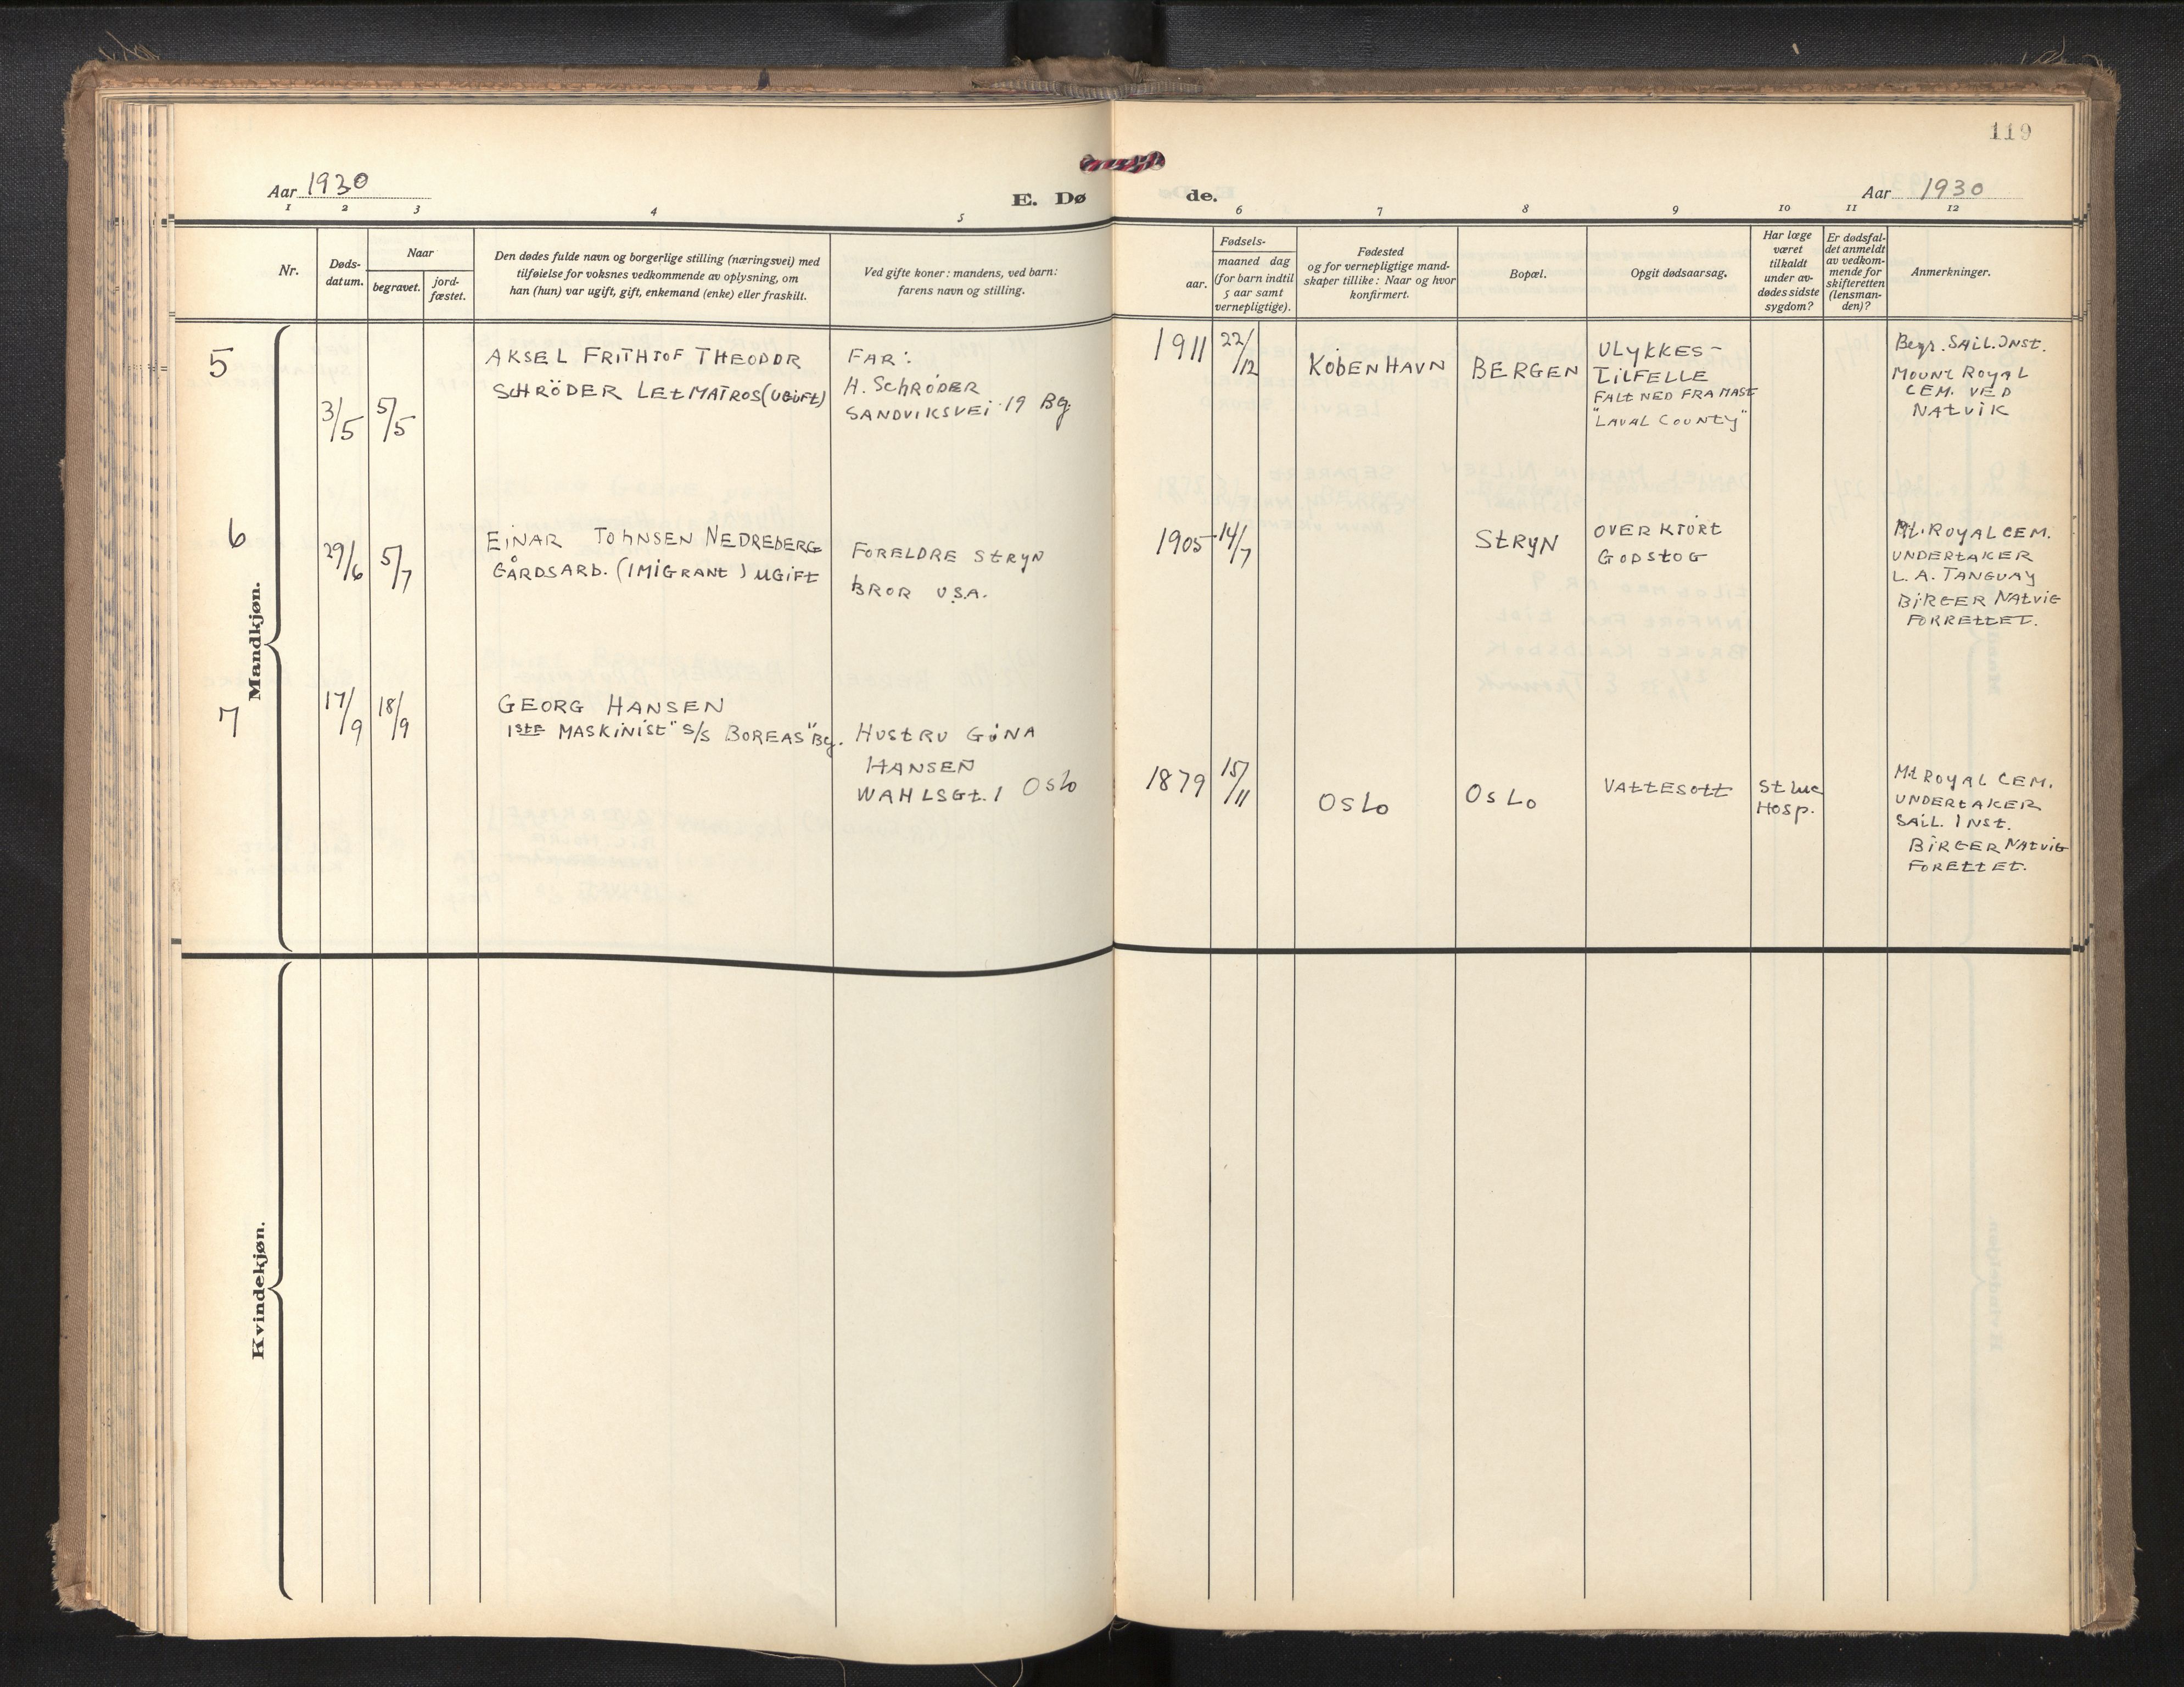 119
Aar 1930
E. Døde.
Aar 1930
1 2 3 4 5 6 7 8 9 10 11 12
Nr.
Døds-
datum.
Naar
begravet.
jord-
fæstet.
Den dødes fulde navn og borgerlige stilling (næringsvei) med
tilføielse for voksnes vedkommende av oplysning, om
han (hun) var ugift, gift, enkemand (enke) eller fraskilt.
Ved gifte koner: mandens, ved barn:
farens navn og stilling.
Fødsels-
aar.
maaned dag
(for barn indtil
5 aar samt
vernepligtige).
Fødested
og for vernepligtige mand-
skaper tillike: Naar og hvor
konfirmert.
Bopæl.
Opgit dødsaarsag.
Har læge
været
tilkaldt
under av-
dødes sidste
sygdom?
Er dødsfal-
det anmeldt
av vedkom-
mende for
skifteretten
(lensman-
den)?
Anmerkninger.
Mandkjøn.
5
3/5
5/5
AKSEL FRITHJOF THEODOR
SCHRÖDER LETMATROS (UGIFT)
FAR:
H. SCHRÖDER
SANDVIKSVEI 19 Bg.
1911
22/12
KÖBENHAVN
BERGEN
ULYKKES-
TILFELLE
FALT NED FRA MAST
"LAVAL COUNTY"
Begr. SAIL. INST.
MOUNT ROYAL
CEM. VED
NATVIK
6
29/6
5/7
EINAR JOHNSEN NEDREBERG
GÅRDSARB. (IMIGRANT) UGIFT
FORELDRE STRYN
BROR U.S.A.
1905
14/7
STRYN
OVERKJÖRT
GODSTOG
Mt. ROYAL CEM.
UNDERTAKER
L. A. TANGUAY
BIRGER NATVIG
FORRETTET.
7
17/9
18/9
GEORG HANSEN
1STE MASKINIST "S/S BOREAS" Bg.
HUSTRU GINA
HANSEN
WAHLSGT. 1 OSLO
1879
15/11
OSLO
OSLO
VATTESOTT
St Luc
HOSP.
Mt ROYAL CEM.
UNDERTAKER
SAIL. INST.
BIRGER NATVIG
FORETTET.
Kvindekjøn.